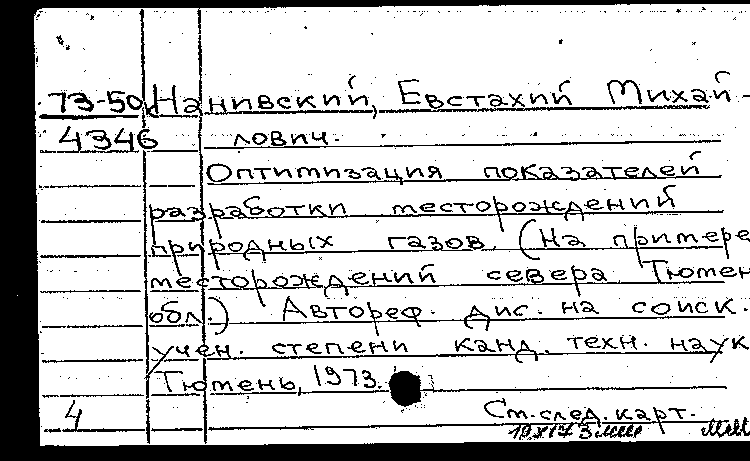 73-50 Нанивский, Евстахий Михай-
4346 лович.
Оптимизация показателей
разработки месторождений
природных газов. (На примере
месторождений севера Тюмен
обл.) Автореф. дис. на соиск.
учен. степени канд. техн. наук
Тюмень, 1973.
4 См. след. карт.